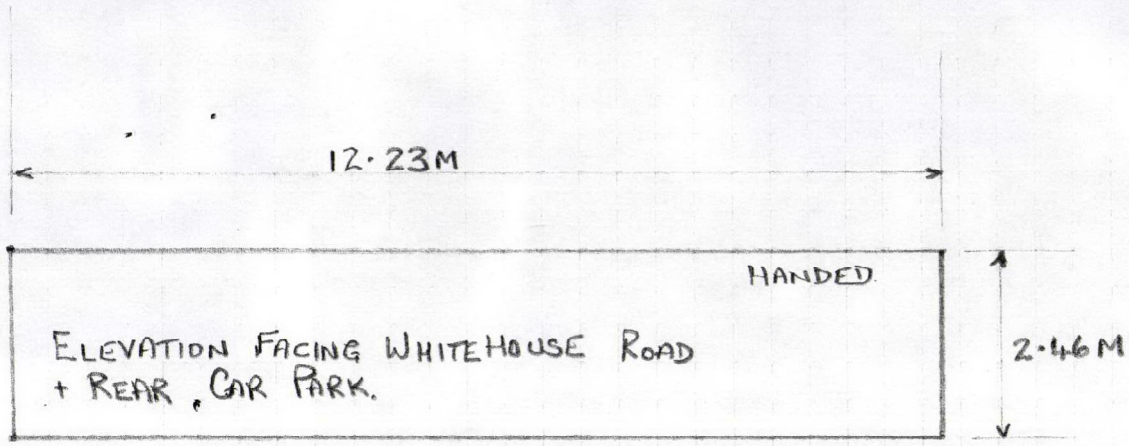 12·23M
HANDED.
ELEVATION FACING WHITEHOUSE ROAD
2·46M
+ REAR, CAR PARK.